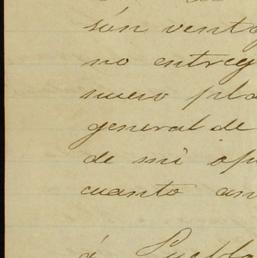 són vento
no entreg
nuevo pla
general de
de mi op
cuanto an
á Puebla